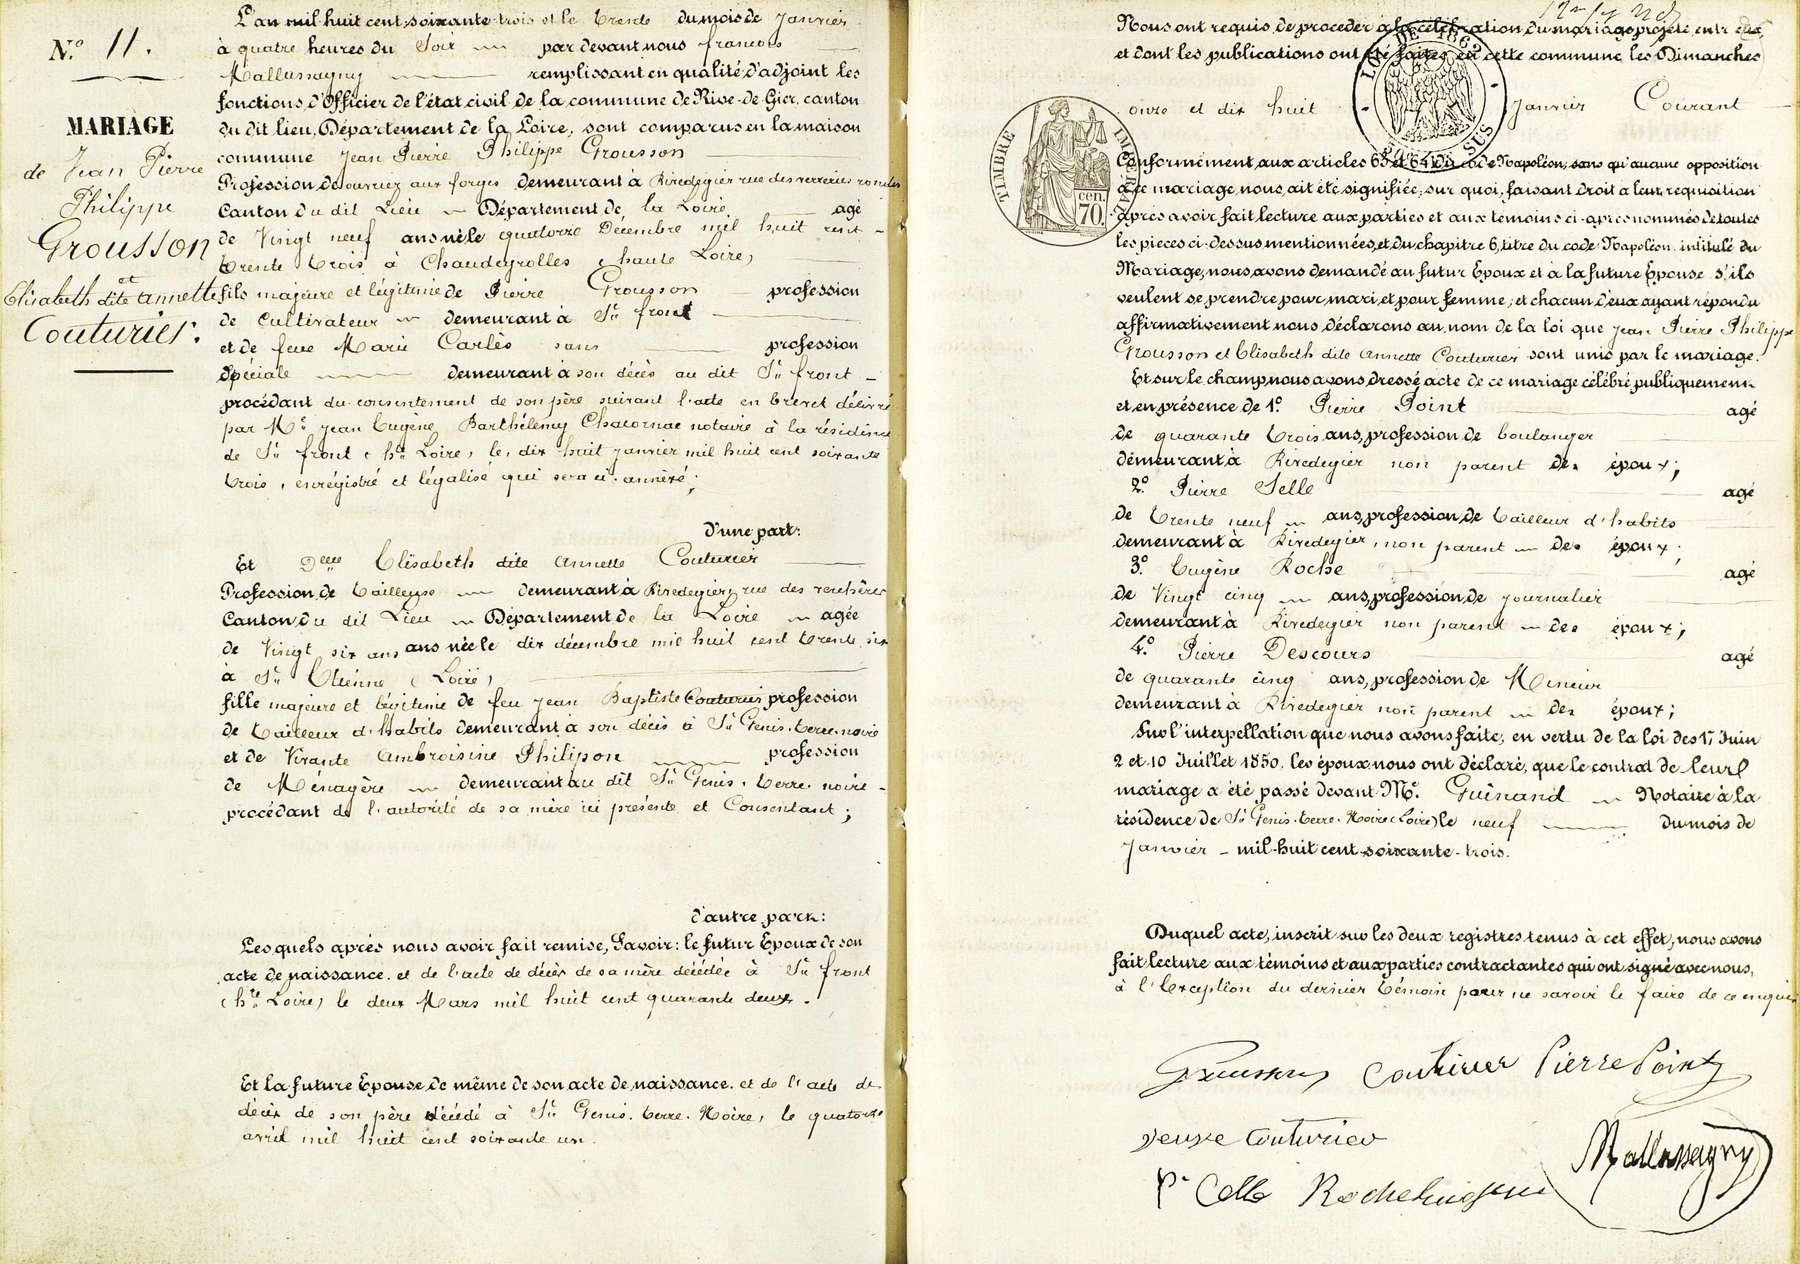 N.º 11.
MARIAGE
de Jean Pierre
Philippe
Grousson
et
Elisabeth dite annette
Couturier.
L'an mil huit cent soixante-trois et le trente du mois de Janvier
à quatre heures du Soir par devant nous francois
Mallassagny remplissant en qualité d'adjoint les
fonctions d'Officier de l'état civil de la commune de Rive-de-Gier, canton
du dit lieu, Département de la Loire, sont comparus en la maison
commune Jean Pierre Philippe Grousson
Profession de ouvrier aux forges demeurant à Rivedegier rue des verreries
Canton du dit Lieu Département de la Loire agé
de Vingt neuf ans né le quatorze Décembre mil huit cent
trente trois à Chaudeyrolles (haute Loire)
fils majeure et légitime de Pierre Grousson profession
de Cultivateur demeurant à St front
et de feue Marie Carlès sans profession
spéciale demeurant à son décès au dit St front
procédant du consentement de son père suivant l'acte en brevet délivré
par Me Jean Eugène Barthélemy Chacornac notaire à la résidence
de St front (hte Loire) le dix huit janvier mil huit cent soixante
trois, enrégistré et légalisé qui sera ci annéxé;
D'une part:
Et Delle Elisabeth dite annette Couturier
Profession de tailleuse demeurant à Rivedegier, rue des
Canton du dit Lieu Département de la Loire agée
de Vingt six ans ans née le dix décembre mil huit cent trente six
à St Etiénne (Loire)
fille majeure et légitime de feu Jean Baptiste Couturier profession
de tailleur d'habits demeurant à son décès à St Genis-terre-noire
et de Vivante Ambroisine Philipon profession
de Ménagère demeurant au dit St Genis-terre-noire
procédant de l'autorité de sa mère ici présente et Consentant;
d'autre part:
Lesquels après nous avoir fait remise, Savoir: le futur Epoux de son
acte de naissance. et de l'acte de décès de sa mère décédée à St front
(hte Loire) le deux Mars mil huit cent quarante deux.
Et la future Epouse de même de son acte de naissance. et de l'acte de
décès de son père décédé à St Genis-terre-Noire, le quatorze
avril mil huit cent soixante un.
Nous ont requis de proceder à la célébration du mariage projeté entr'eux,
et dont les publications ont été faites en cette commune, les Dimanches
onze et dix huit Janvier Courant
LOI DE 1862
TIMBRE IMPERIAL
70 cen.
Conformément aux articles 63 et 64 du code Napoléon, sans qu'aucune opposition
à ce mariage nous ait été signifiée; sur quoi, faisant droit à leur requisition
après avoir fait lecture aux parties et aux témoins ci-après nommés de toutes
les pièces ci-dessus mentionnées, et du chapitre 6, titre du code Napoléon intitulé du
Mariage, nous avons demandé au futur Epoux et à la future Epouse s'ils
veulent se prendre pour mari et pour femme; et chacun d'eux ayant répondu
affirmativement nous déclarons au nom de la loi que Jean Pierre Philippe
Grousson et Elisabeth dite Annette Couturier sont unis par le mariage.
Et sur le champ nous avons dressé acte de ce mariage célébré publiquement
et en présence de 1º Pierre Point agé
de quarante trois ans, profession de boulanger
demeurant à Rivedegier non parent des époux;
2º Pierre Selle agé
de trente neuf ans, profession de tailleur d'habits
demeurant à Rivedegier, non parent des époux;
3º Eugène Roche agé
de Vingt cinq ans, profession de journalier
demeurant à Rivedegier non parent des époux;
4º Pierre Descours agé
de quarante cinq ans, profession de Mineur
demeurant à Rivedegier non parent des époux;
Sur l'interpellation que nous avons faite, en vertu de la loi des 17 Juin
2 et 10 Juillet 1850, les époux nous ont déclaré, que le contrat de leur
mariage a été passé devant Me. Guinand Notaire à la
résidence de St Genis-terre-Noire (Loire) le neuf du mois de
Janvier mil-huit cent-soixante-trois.
Duquel acte, inscrit sur les deux registres tenus à cet effet, nous avons
fait lecture aux témoins et aux parties contractantes qui ont signé avec nous,
à l'Exception du dernier témoin pour ne savoir le faire de ce enquis
Grousson Couturier Pierre Point
veuve Couturier Mallassagny
Pr Celle Roche